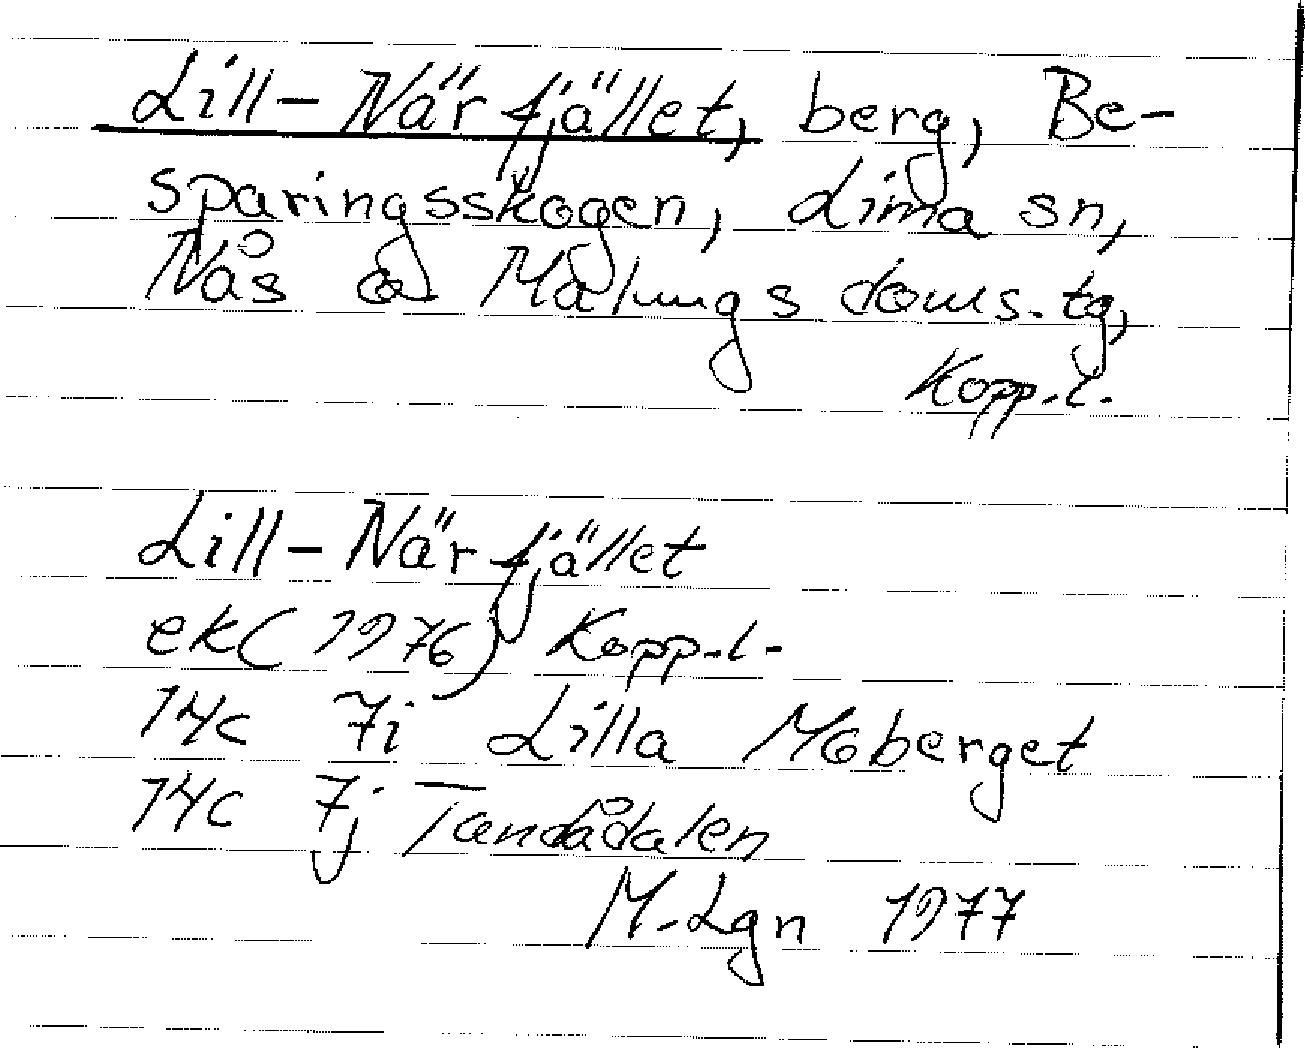 Lill-Närfjället, berg, Be-
sparingsskogen, Lima sn,
Nås o Malungs doms. tg,
Kopp.l.
Lill-Närfjället
ek (1976) Kopp.l.
14c 7i Lilla Moberget
14c 7j Tandådalen
M.Lgn 1977